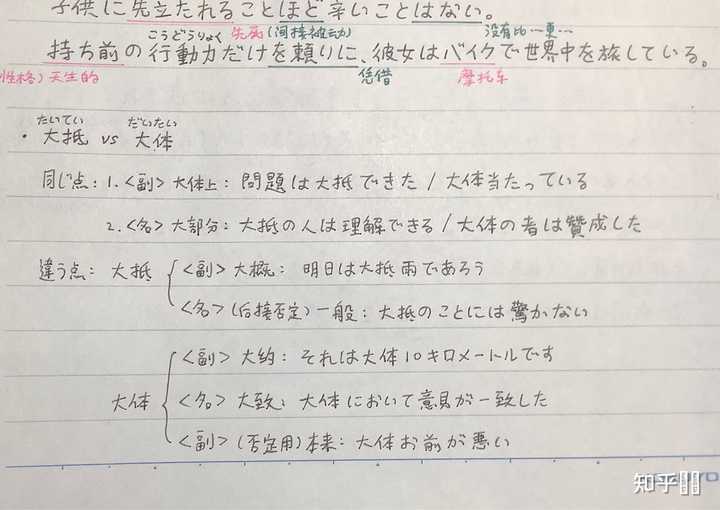 子供に先立たれることほど辛いことはない。
こうどうりょく 先死(间接被动) 没有比…更…
持ち前の行動力だけを頼りに、彼女はバイクで世界中を旅している。
性格)天生的 凭借 摩托车
たいてい だいたい
・大抵 vs 大体
同じ点:1.<副>大体上:問題は大抵できた/大体当たっている
2.<名>大部分:大抵の人は理解できる/大体の者は賛成した
違う点:大抵
<副>大概:明日は大抵雨であろう
<名>(后接否定)一般:大抵のことには驚かない
大体
<副>大约:それは大体10キロメートルです
<名>大致:大体において意見が一致した
<副>(否定用)本来:大体お前が悪い
知乎